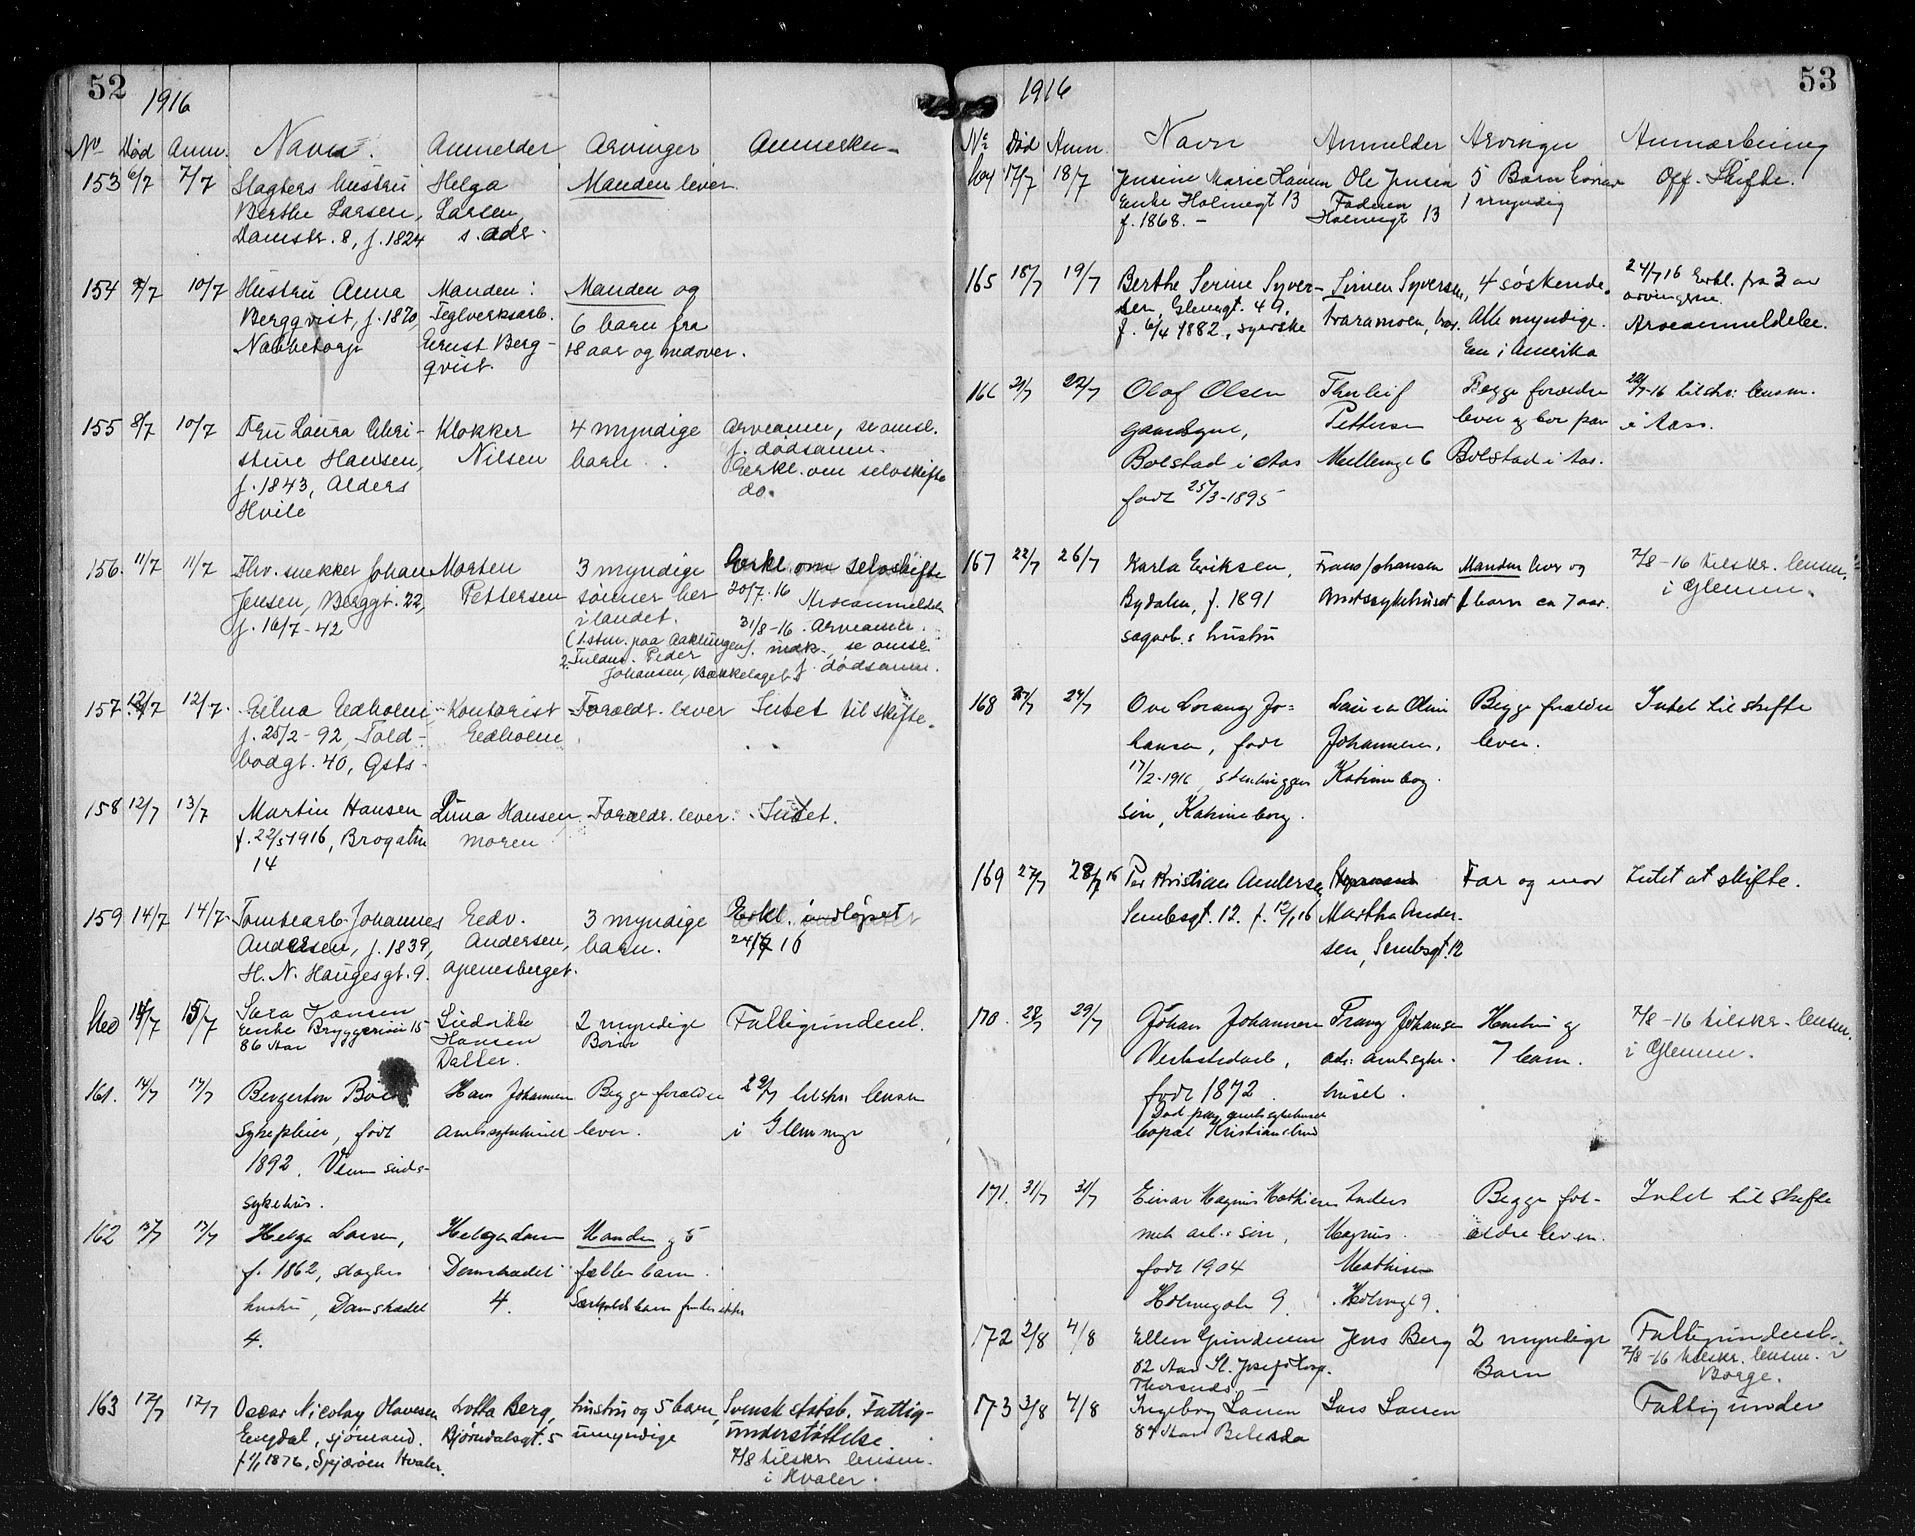 52
1916
No Død Anm. Navn. Anmelder Arvinger Anmerkn.
153 6/7 7/7 Slagters hustru Helga Manden lever.
Berthe Larsen, Larsen,
Damstr. 8, f. 1824 s. adr.
154 9/7 10/7 Hustru Anna Manden: Manden og
Bergqvist, f. 1870, Teglverksarb. 6 barn fra
Nabbetorp Ernst Berg- 18 aar og nedover.
qvist.
155 8/7 10/7 Fru Laura Chri- Klokker 4 myndige Arveanm, se omsl.
stine Hansen, Nilsen barn. f. dødsanm.
f. 1843, Alders Erkl. om selvskifte
Hvile do.
156. 11/7 11/7 Fhv. snekker Johan Morten 3 myndige Erkl. om selvskifte
Jensen, Berggt. 22, Pettersen sønner her 20/7.16 Arveanmeldelse
f. 16/7-42 i landet. 31/8-16. Arveanm.
f. mdk., se omsl.
Johansen, Bækkelaget f. dødsanm.
157. 12/7 12/7. Edholm Kontorist Foreldr. lever Intet til skifte.
f. 25/2-92, Told- Edholm
bodgt. 40, Gsts.
158 12/7 13/7 Martin Hansen Lina Hansen Foreldr. lever. Intet.
f. 22/5 1916, Brogaten moren
14
159 14/7 14/7 Tomtearb. Johannes Edv. 3 myndige Erkl. indløpet
Andersen, f. 1839, Andersen, barn. 24/7 16
H. N. Haugesgt. 9. Apenesberget.
160 14/7 15/7 Sara Hansen 2 myndige Fattigunderst.
Enke Bryggeriei 15 Hansen Børn
86 Aar Datter.
161. 14/7 17/7 Hans Johannesen Begge forældre 29/7 tilskr. lensm
sykepleier, født Amtssykehuset lever. i Glemmen
1892. Veum sinds-
sykehus.
162 17/7 17/7 Helga Larsen, Helga Larsen Manden og 5
f. 1862, slagters Damstrædet fælles barn.
hustru, Damstrædet 4. Særkuldsbarn findes ikke
4.
163 17/7 17/7 Oscar Nicolay Olavesen Lotta Berg, hustru og 5 barn, Svensk statsb. Fattig-
Engdal, sjømand. Bjørndalsgt. 5 umyndige understøttelse
f 1/1 1876, Spjærøen Hvaler. 7/8 tilskr lensm.
i Hvaler.
53
1916
No Død Anm. Navn Anmelder Arvinger Anmærkning
164 17/7 18/7 Jensine Marie Hansen Ole Jensen 5 Barn Off. Skifte.
Enke Holmegt 13 Faderen 1 myndig
f. 1868. - Holmegt 13
165 18/7 19/7 Berthe Serine Syver- Simen Syversen, 4 søskende. 24/7 16 Erkl. fra 3 av
sen, Glemgt. 49, Alle myndige. arvingerne.
f. 6/4 1882, syerske En i Amerika Arveanmeldelse.
166 21/7 22/7 Olaf Olsen Thorleif Begge forældre 22/7-16 tilskr. lensm.
Pettersen lever og bor paa i Aas.
Bolstad i Aas Møllergt 6 Bolstad i Aas.
født 25/3-1895
167 22/7 26/7 Karla Eriksen, Frans Johansen Manden lever og 7/8-16 tilskr. lensm.
Bydalen, f. 1891 Amtssykehuset 1 barn ca 7 aar. i Glemm.
sagarb.s hustru
168 23/7 24/7 Ove Lorang Jo- Laura Oline Begge forældre Intet til skifte
hansen, født Johannesen, lever.
17/2-1916, stenhuggers Katrineborg.
søn, Katrineborg.
169 27/7 28/7 16 Per Kristian Andersen Far og mor Intet at skifte.
Sembsgt. 12. f. 12/1 16 Martha Ander-
sen, Sembsgt. 12
170. 28/7 29/7 Johan Johannesen Frans Johansen Hustru og 7/8-16 tilskr. lensm.
Verkstedarb, adr: amtssyke- 7 barn. i Glemm.
født 1872 huset.
Død paa amtssykehuset
bopæl Kristianslund
171. 31/7 31/7 Einar Magnus Mathisen Anders Begge for- Intet til skifte
arb.s søn, Magnus ældre lever.
født 1904 Mathisen
Holmegate 9. Holmegt 9.
172 2/8 4/8 Ellen Gundersen Jens Berg 2 myndige Fattigunderst.
82 Aar St. Josefs Barn 7/8-16 tilskr. lensm. i
Borge.
173 3/8 4/8 Ingeborg Larsen Lars Larsen Fattigunder
84 Aar